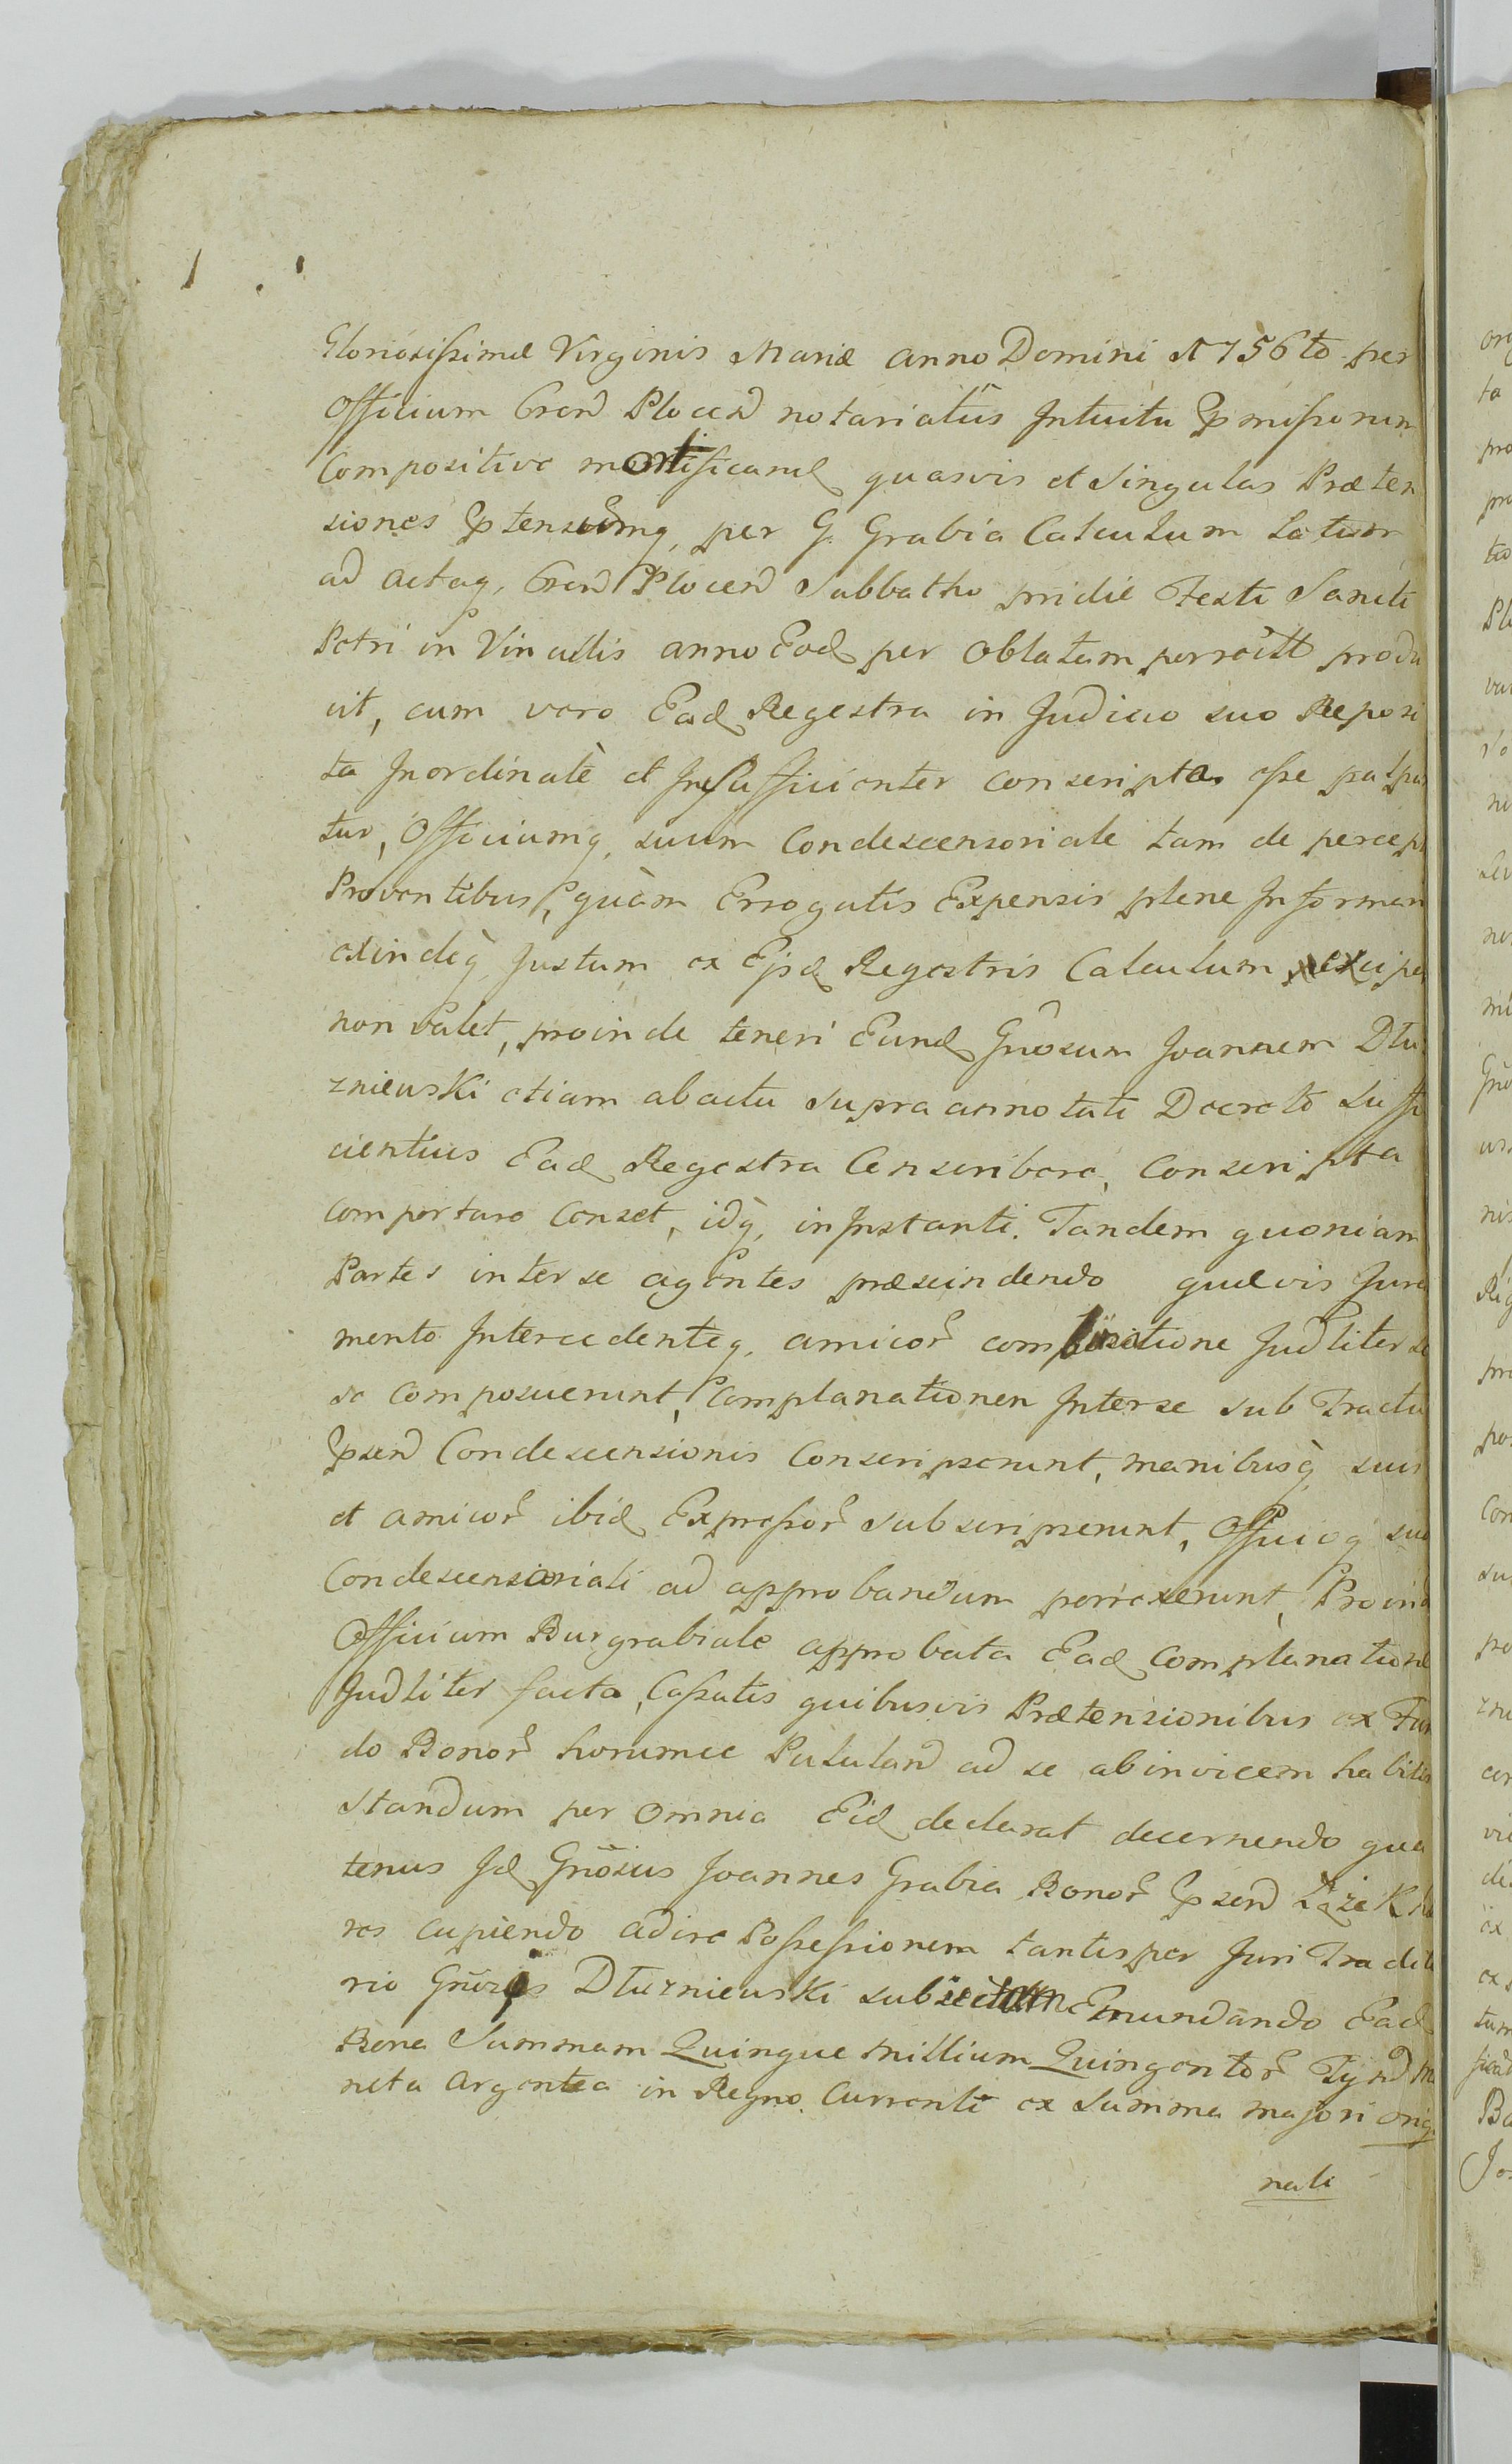 Gloriosissimæ Virginis Mariæ anno Domini 1756to per
Officium Crend Plocen notariatûs Intuitu pmissorum
Compositive mortificand quasvis et Singulas Præten
siones ptensumq, per G. Grabia Calculum Latum
ad actaq, Crend Plocen Sabbatho pridie Festi Sancti
Petri in Vinculis anno Eod per Oblatam porrexit produ
cit, cum vero Ead Regestra in Judicio suo Reposi
ta Inordinatè et Insufficienter conscripta esse palpa
tur, Officiumq, suum Condescensoriale tam de percep
Proventibus, quàm Errogatis Expensis plene Informari
exindeq, Justum ex Ejsd Regestris Calculum excipe
non valet, proinde teneri Eund Gnosum Joannem Dłu
zniewski etiam ab actu supra annotati Decreto Suffi
cientius Ead Regestra Conscribere, Conscripta
comportare Censet, idq, in Instanti. Tandem quoniam
Partes inter se agentes præscindendo quævis Jura
mento Intercedenteq, amicor compositione Judliter se
se composuerunt, Complanationem Inter se sub Tractu
psen Condescensionis Conscripserunt, manibusq suis
et amicor ibid Expressor subscripserunt, Officioq suo
Condescensoriali ad approbandum porrexerunt, Proind
Officium Burgrabiale approbata Ead Complanatione
Judliter facta, Cassatis quibusvis Prætensionibus ex Fun
do Bonor horumce Pululand ad se ab invicem habitis
standum per Omnia Eid declarat decernendo qua
tenus Id Gnosus Joannes Grabia Bonor psen Łążek hæ
res cupiendo adire Possessionem tantisper Juri Tradito
rio Gnosis Dłuzniewski Emundando Ead
Bona Summam Quinque millium Quingentor Tynd mo
neta Argentea in Regno Currenti ex Summa majori origi
nali